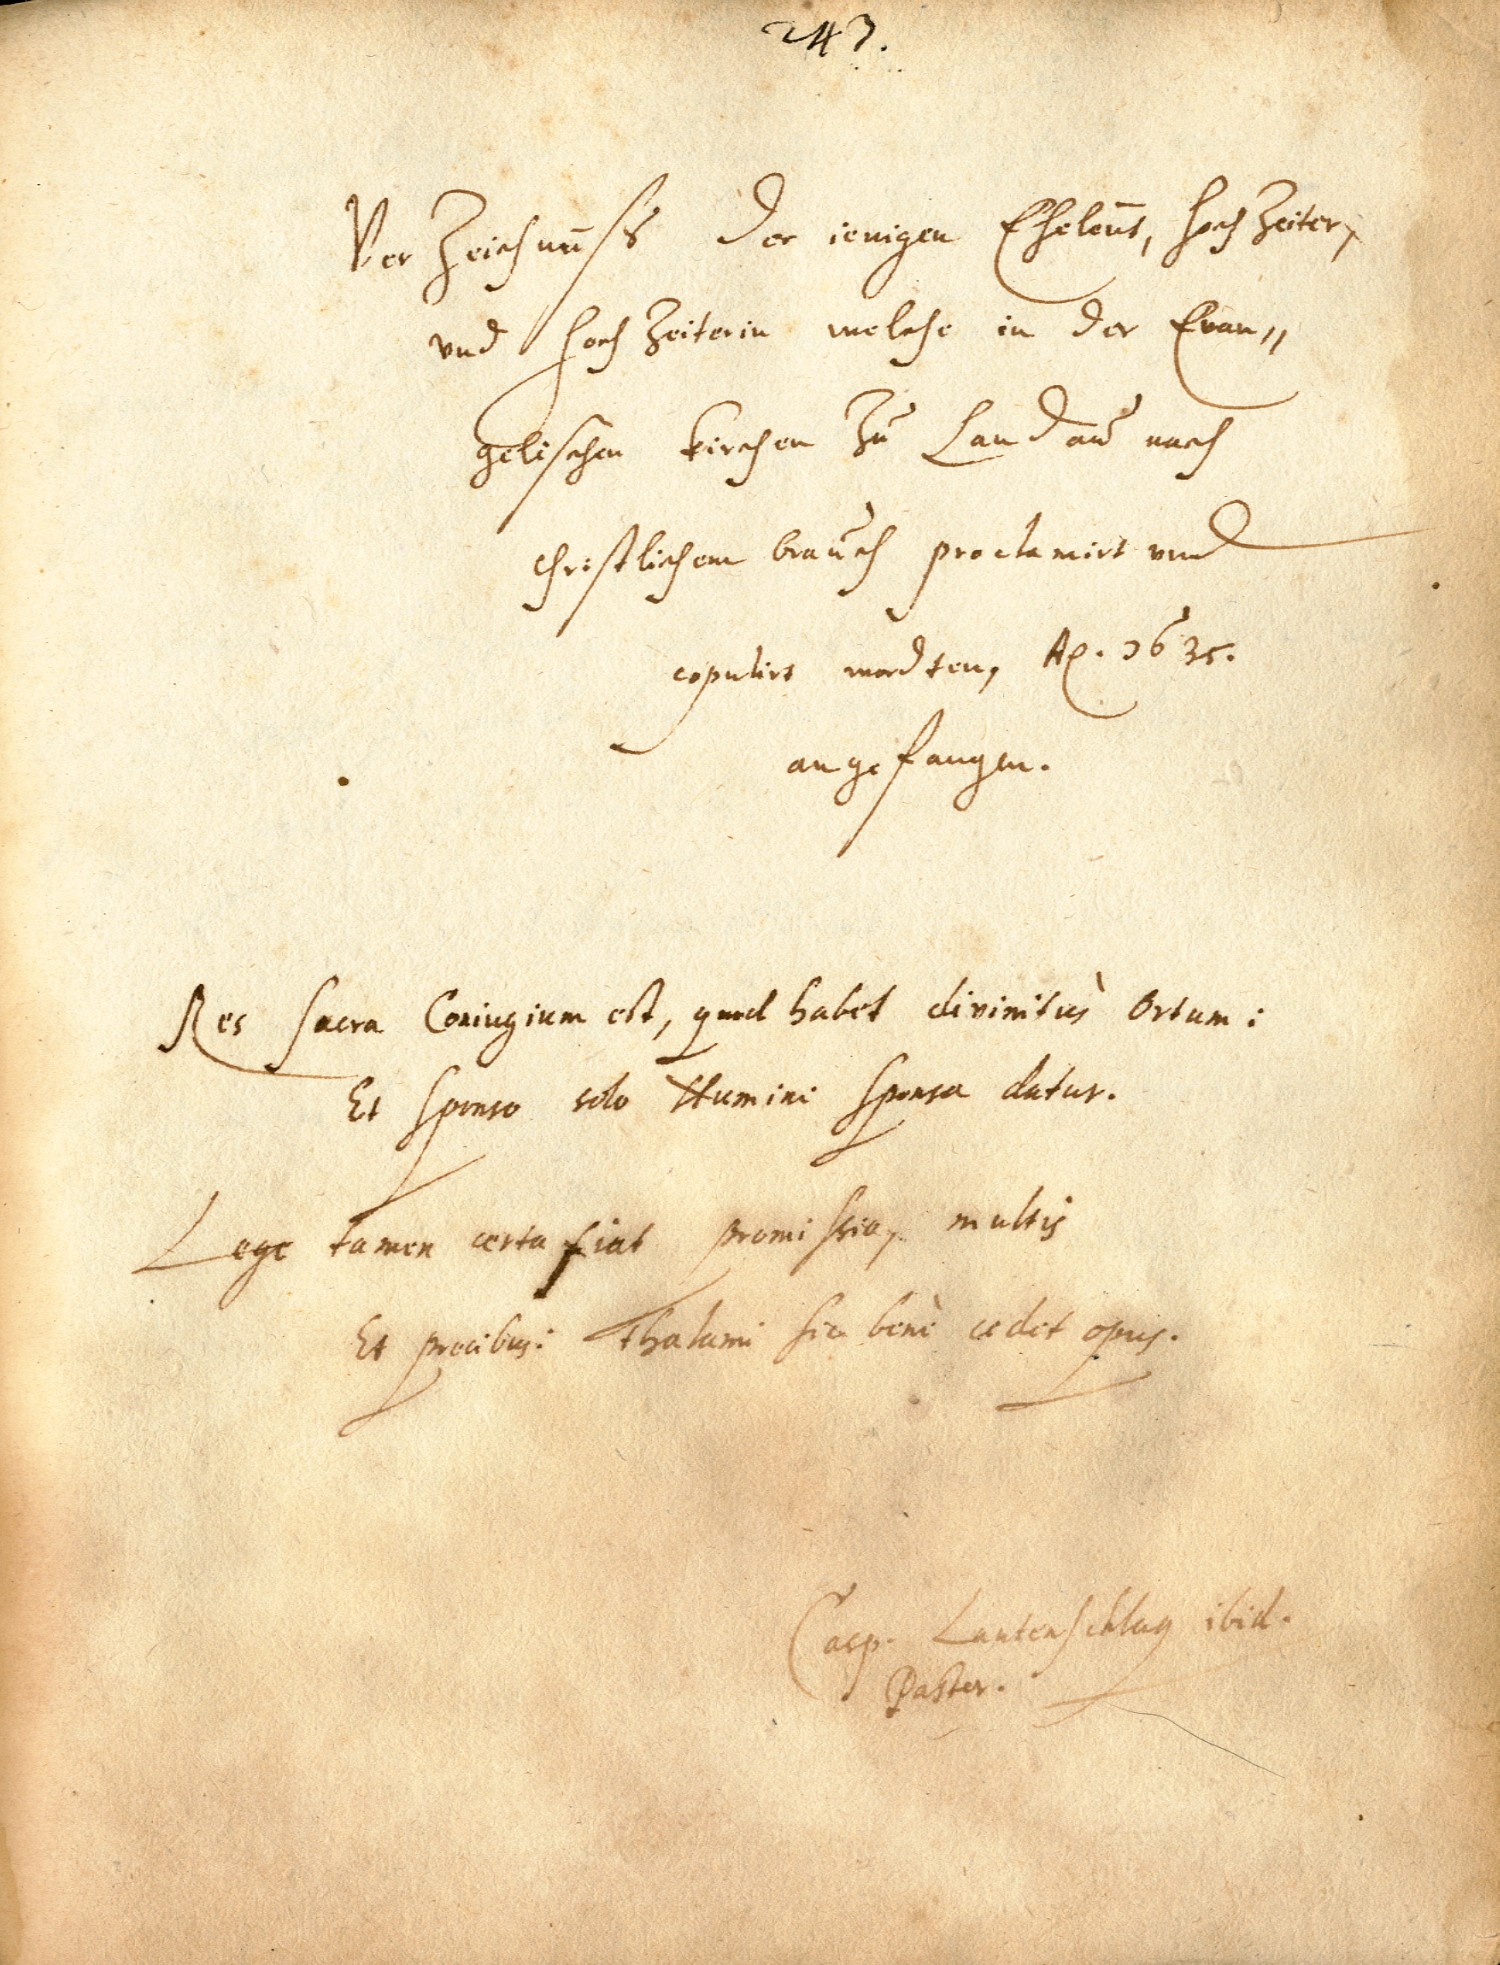 247.
Verzeichnuß der ienigen Eheleut, hochzeiter,
vnd hochzeiterin welche in der Evan„
gelischen kirchen zu Landaw nach
christlichem brauch proclamirt vnd
copulirt wordten, Ao. 1635.
angefangen.
Res sacra Coniugium est, quod habet divinitùs Ortum:
Et sponso solo Numini sponsa datur.
Lege tamen certa fiat promissio, multis
Et precibus: Thalami sic benè cedet opus.
Casp. Lautenschlag ibid.
Pastor.